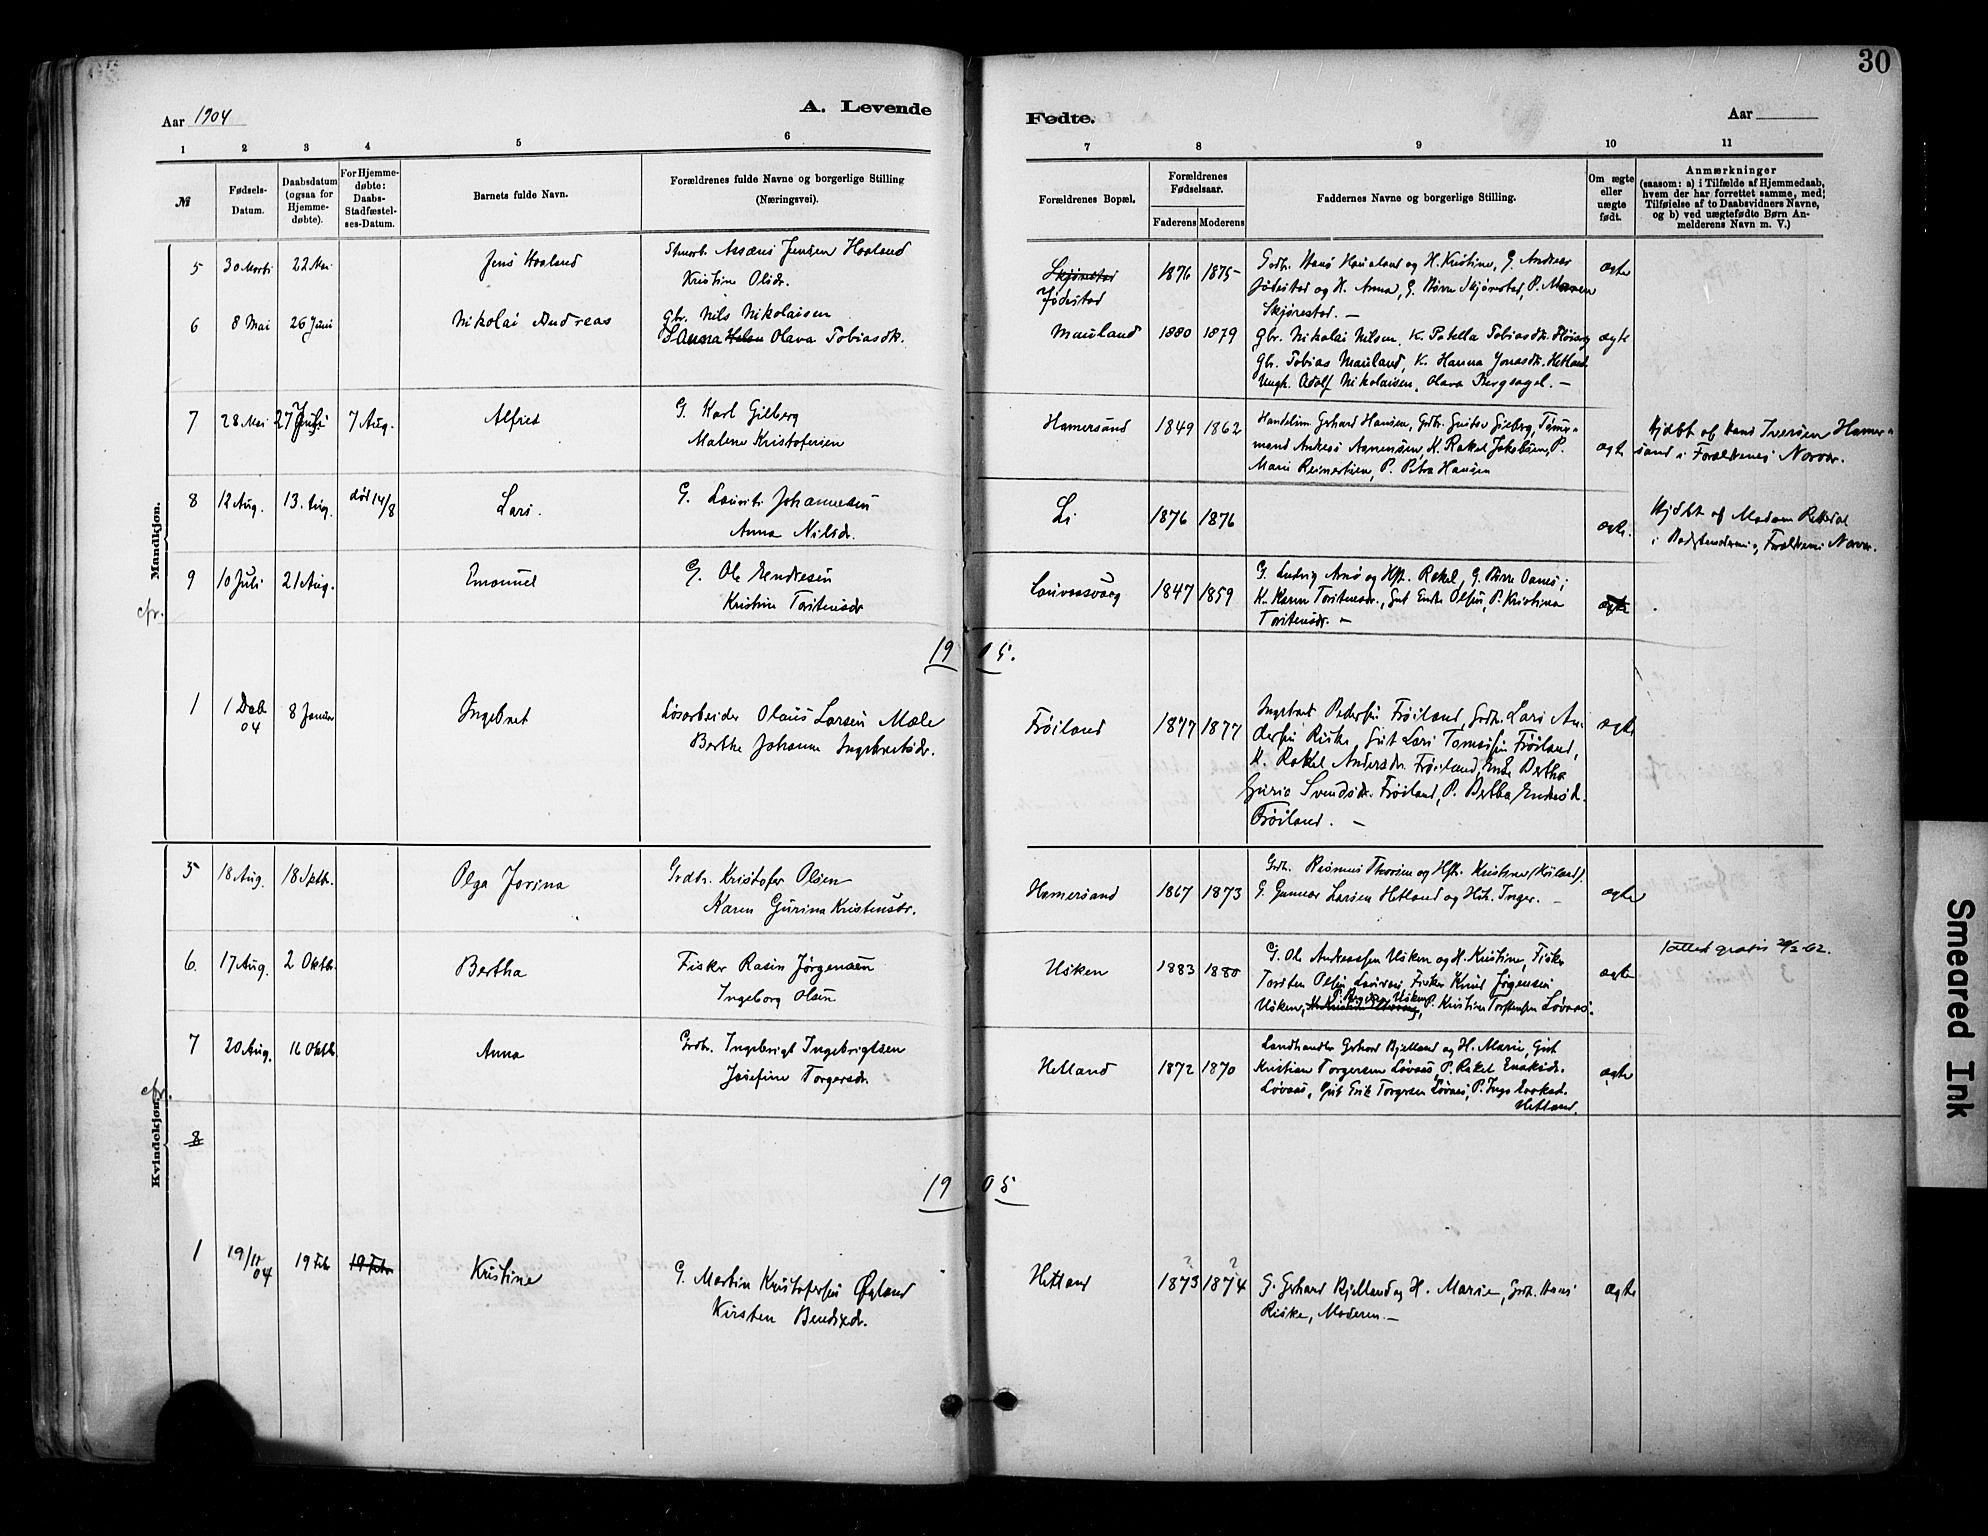 30
Aar 1904
A. Levende
Fødte.
Aar
1 2 3 4 5 6 7 8 9 10 11
№
Fødsels-
Datum.
Daabsdatum
(ogsaa for
Hjemme-
døbte).
For Hjemme-
døbte:
Daabs-
Stadfæstel-
ses-Datum.
Barnets fulde Navn.
Forældrenes fulde Navne og borgerlige Stilling
(Næringsvei).
Forældrenes Bopæl.
Forældrenes
Fødselsaar.
Faderens Moderens
Faddernes Navne og borgerlige Stilling.
Om ægte
eller
uægte
født.
Anmærkninger
(saasom: a) i Tilfælde af Hjemmedaab,
hvem der har forrettet samme, med
Tilføielse af to Daabsvidners Navne,
og b) ved uægtefødte Børn An-
melderens Navn m. V.)
Mandkjøn.
5 30 Marts 22 Mai Jens Haaland
Jensen Haaland
Kristine Olsdr.
Skjørestad
Jødestad
1876 1875
Grdbr. Hans Haualand og H. Kristine, G. Andreas
Jødestad og H. Anna, G. Børre Skjørestad, P. Maren
Skjørestad. —
ægte
6 8 Mai 26 Juni Nikolai Andreas
gbr. Nils Nikolaisen
Olava Tobiasdtr.
Mauland 1880 1879
gbr. Nikolai Nilsen, K. Tobiasdtr.
gbr. Tobias Mauland, K. Hanna Jonasdtr. Hetland
Ungk. Adolf Nikolaisen, Olava Bergsagel. —
ægte
7 28 Mai 27 Juli 7 Aug. Alfred
G. Karl Gilberg
Malene Kristofersen
Hamersand 1849 1862
Handelsm. Gerhard Hansen, Grdbr. Gustav Gilberg, Tømer=
mand Andreas Asmunsen, K. Rakel Jakobsen, P.
Marie Reinertsen, P. Petra Hansen
ægte
Hjdbt af Hans Iversen Hamer=
sand i Forældrenes Nærvær.
8 12 Aug. 13. Aug. død 14/8 Lars.
G. Laurits Johannesen
Anna Nilsdr.
Li 1876 1876
ægte.
Hjdbt af Madam Rettedal
i Forældrenes Nærvær.
cfr.
9 10 Juli 21 Aug. Emanuel
G. Ole Endresen
Kristine Torstensdr
Lauvaasvaag 1847 1859
G. Ludvig Arnø og Hst. Rakel, G. Børre Oanes;
K. Karen Torstensdr., Gut Endre Olsen, P. Kristina
Torstensdr. —
ægte
1905.
1 1 Decb 04 8 Januar Ingebret
Løsarbeider Olaus Larsen Mæle
Berthe Johanne Ingebretsdr.
Frøiland 1877 1877
Ingebret Pedersen Frøiland, Grdbr. Lars An-
dersen Riske, Gut Lars Tomassen Frøiland,
K. Rakel Andersdr. Frøiland, Enke Bertha
Guria Svendsdr. Frøiland, P. Bertha Endresdr.
Frøiland. —
ægte
Kvindekjøn.
5 18 Aug. 18 Septb. Olga Jorina
Grdbr. Kristofer Olsen
Karen Gurina Kristensdr.
Hamersand 1867 1873
Grdb. Rasmus Thorsen og Hst. Kristense (Høiland).
G. Gunnar Larsen Hetland og Hst. Inger. —
ægte
6. 17 Aug. 2 Oktbr. Bertha
Fisker Rasmus Jørgensen
Ingeborg Olsen
Usken 1883 1880
G. Ole Andreassen Usken og H. Kristine, Fisker
Torsten Olsen Lauvaas, Fisker Knud Jørgensen
Usken, P. Usken, P. Kristine Torstensen Løvaas.
ægte
gratis 20/2 62.
cfr.
7 20 Aug. 16 Oktbr. Anna
Grdbr. Ingebrigt Ingebrigtsen
Josefine Torgersdr.
Hetland 1872 1870
Landhandler Gerhard Bjelland og H. Marie, Gut
Kristian Torgersen Løvaas, P. Rakel Enoksdr.
Løvaas, Gut Erik Torgersen Løvaas, P. Inga Enoksd.
Hetland.
ægte
8
1905
1 19/11 04 19 Feb 19 Febr Kristine
G. Martin Kristofersen Øgland
Kirsten Bendixdr.
Hetland 1873? 1874?
G. Gerhard Bjelland og H. Marie, Grdb. Hans
Riske, Moderen. —
ægte
Smeared Ink